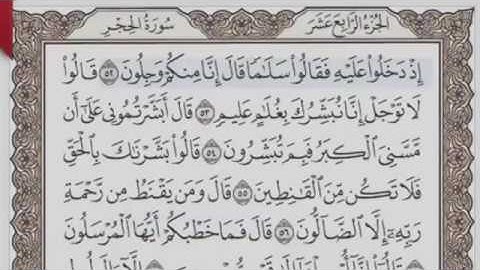 الجزء الرابع عشر
سورة الحجر
إِذْ دَخَلُوا۟ عَلَيْهِ فَقَالُوا۟ سَلَـٰمًا قَالَ إِنَّا مِنكُمْ وَجِلُونَ ٥٢ قَالُوا۟
لَا تَوْجَلْ إِنَّا نُبَشِّرُكَ بِغُلَـٰمٍ عَلِيمٍ ٥٣ قَالَ أَبَشَّرْتُمُونِى عَلَىٰٓ أَن
مَّسَّنِىَ ٱلْكِبَرُ فَبِمَ تُبَشِّرُونَ ٥٤ قَالُوا۟ بَشَّرْنَـٰكَ بِٱلْحَقِّ
فَلَا تَكُن مِّنَ ٱلْقَـٰنِطِينَ ٥٥ قَالَ وَمَن يَقْنَطُ مِن رَّحْمَةِ
رَبِّهِۦٓ إِلَّا ٱلضَّآلُّونَ ٥٦ قَالَ فَمَا خَطْبُكُمْ أَيُّهَا ٱلْمُرْسَلُونَ